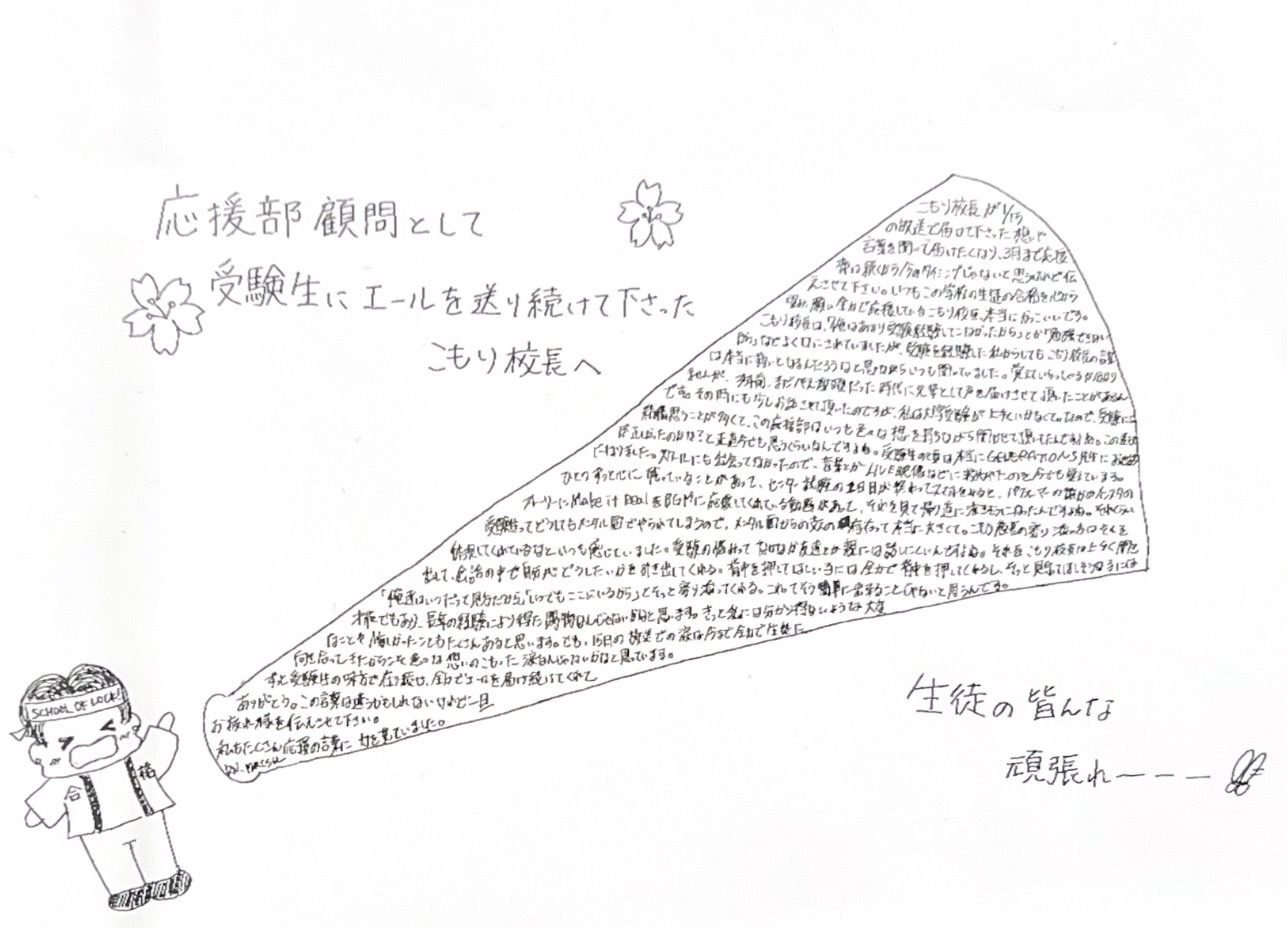 応援部顧問として
受験生にエールを送り続けて下さった
こもり校長へ
こもり校長が1/15
の放送で届けて下さった想いや
言葉を聞いて届けたくなり、3月まで応援
部は続くから今のタイミングじゃないと思うけれど伝
えさせて下さい。いつもこの学校の生徒の合格を心から
願い全力で応援しているこもり校長、本当にかっこいいです。
こもり校長は、「俺はあまり受験経験してこなかったから」とか「勉強できない
から」などよく口にされていましたが、受験を経験した私からしてもこもり校長の言葉
は本当に救いとなるんだろうなと思いながらいつも聞いていました。覚えていらっしゃるか分かり
ませんが、まだぺえ教頭だった時代に先輩として声を届けさせて頂いたことがあるん
です。その時にも少しお話させて頂いたのですが、私は大学受験が上手くいかなくて。なので、受験には
思うことが多くて、この応援部はいつも色々な想いを持ちながら聞かせて頂いてたんですよね。この
正しかったのかな?と正直今でも思うくらいなんですよね。受験生の頃は本当にGENERATIONS先生に
になりました。言葉とかLIVE映像などに救われたのを今でも覚えています。
ひとつずっと心に残っていることがあって、センター試験の1日目が終わってスマホをみると、
ストーリーにMake it RealをBGMに応援してくれている動画があって、それを見て帰り道に泣きそうになったんですよね。それくらい
受験生ってどうしてもメンタル面でやられてしまうので、メンタル面からの支えの存在って本当に大きくて。こもり校長の寄り添い方はそれを
体現してくれているなといつも感じていました。受験の悩みってなかなか友達とか親には話しにくいんですよね。それをこもり校長は上手く聞き
出して、会話の中で自分がどうしたいかを引き出してくれる。背中を押してほしい子には全力で背中を押してくれるし、そっと見守ってほしそうな子には
「俺達はいつだって味方だから」「いつでもここにいるから」とそっと寄り添ってくれる。これってそう簡単に出来ることじゃないと思うんです。
才能でもあり、長年の経験により得た賜物なんじゃないかなと思います。きっと私には分かり得ないような大変
なことや悔しかったこともたくさんあると思います。でも、15日の放送での涙は今まで全力で生徒に
向き合ってきたからこそ色々な想いのこもった涙なんじゃないかなと思っています。
ずっと受験生の味方で在り続け、全力でエールを届け続けてくれて
ありがとう。この言葉は違うかもしれないけれど一旦
お疲れ様を伝えさせて下さい。
私もたくさん応援の言葉に力を貰っていました。
SCHOOL OF LOCK!
合
格
生徒の皆んな
頑張れーーー